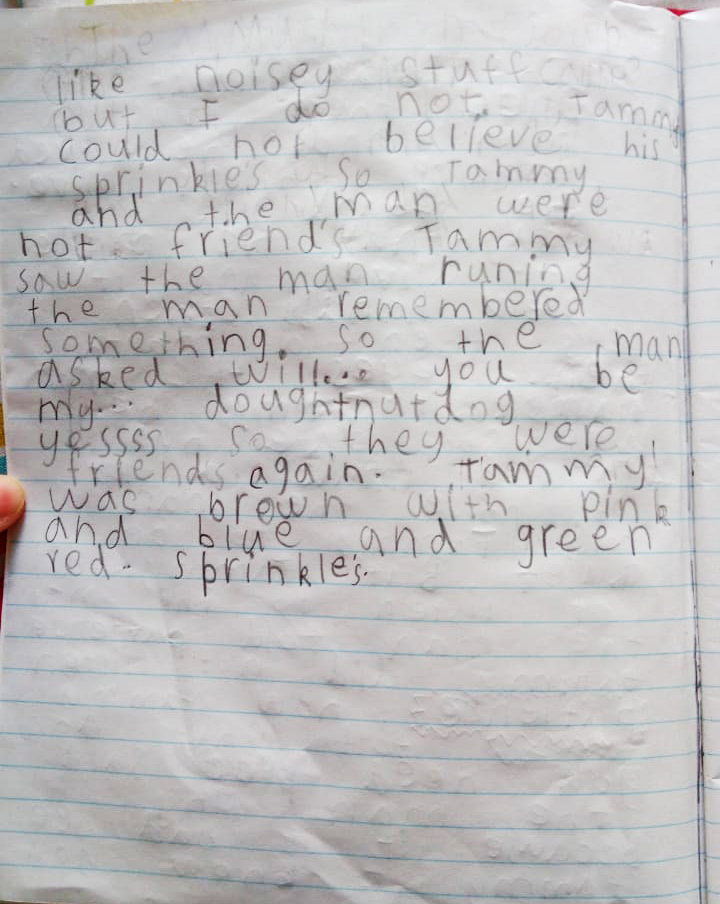 like noisey stuff
but I do not. Tammy
could not believe his
sprinkle's so Tammy
and the man were
not friend's Tammy
saw the man runing
the man remembered
something. so the man
asked will... you be
my... doughtnutdog
yessss so they were
friends again. Tammy
was brown with pink
and blue and green
red. sprinkle's.